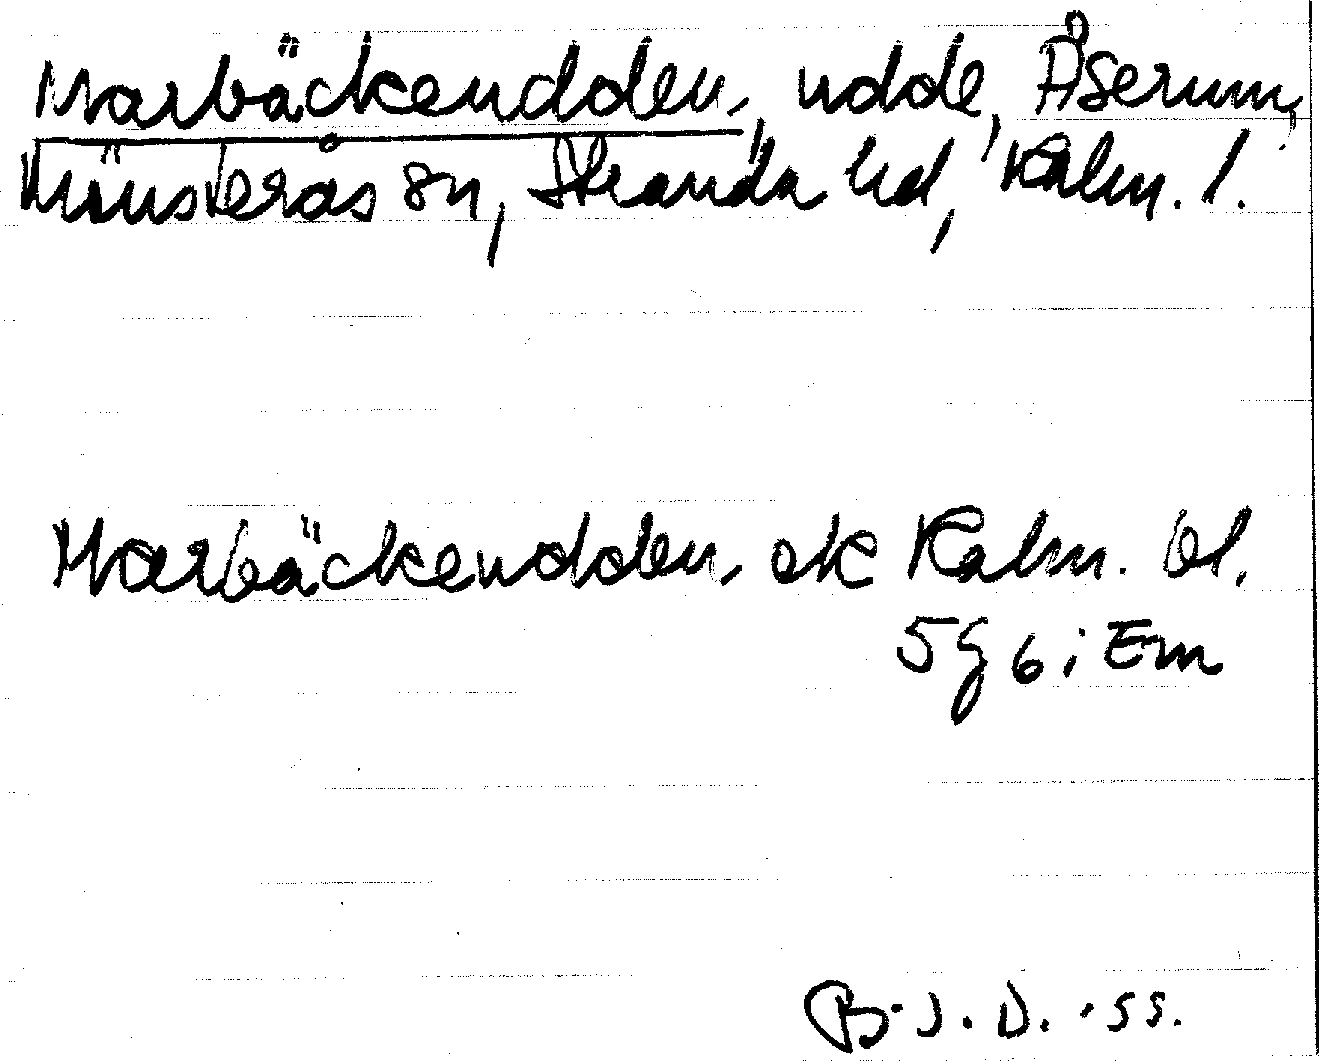 Marbäckeudden, udde, Åserum,
Mönsterås sn, Stranda hd, Kalm. l.
Marbäckeudden. ek Kalm. bl.
5 g 6 i Em
B.J.D. -55.